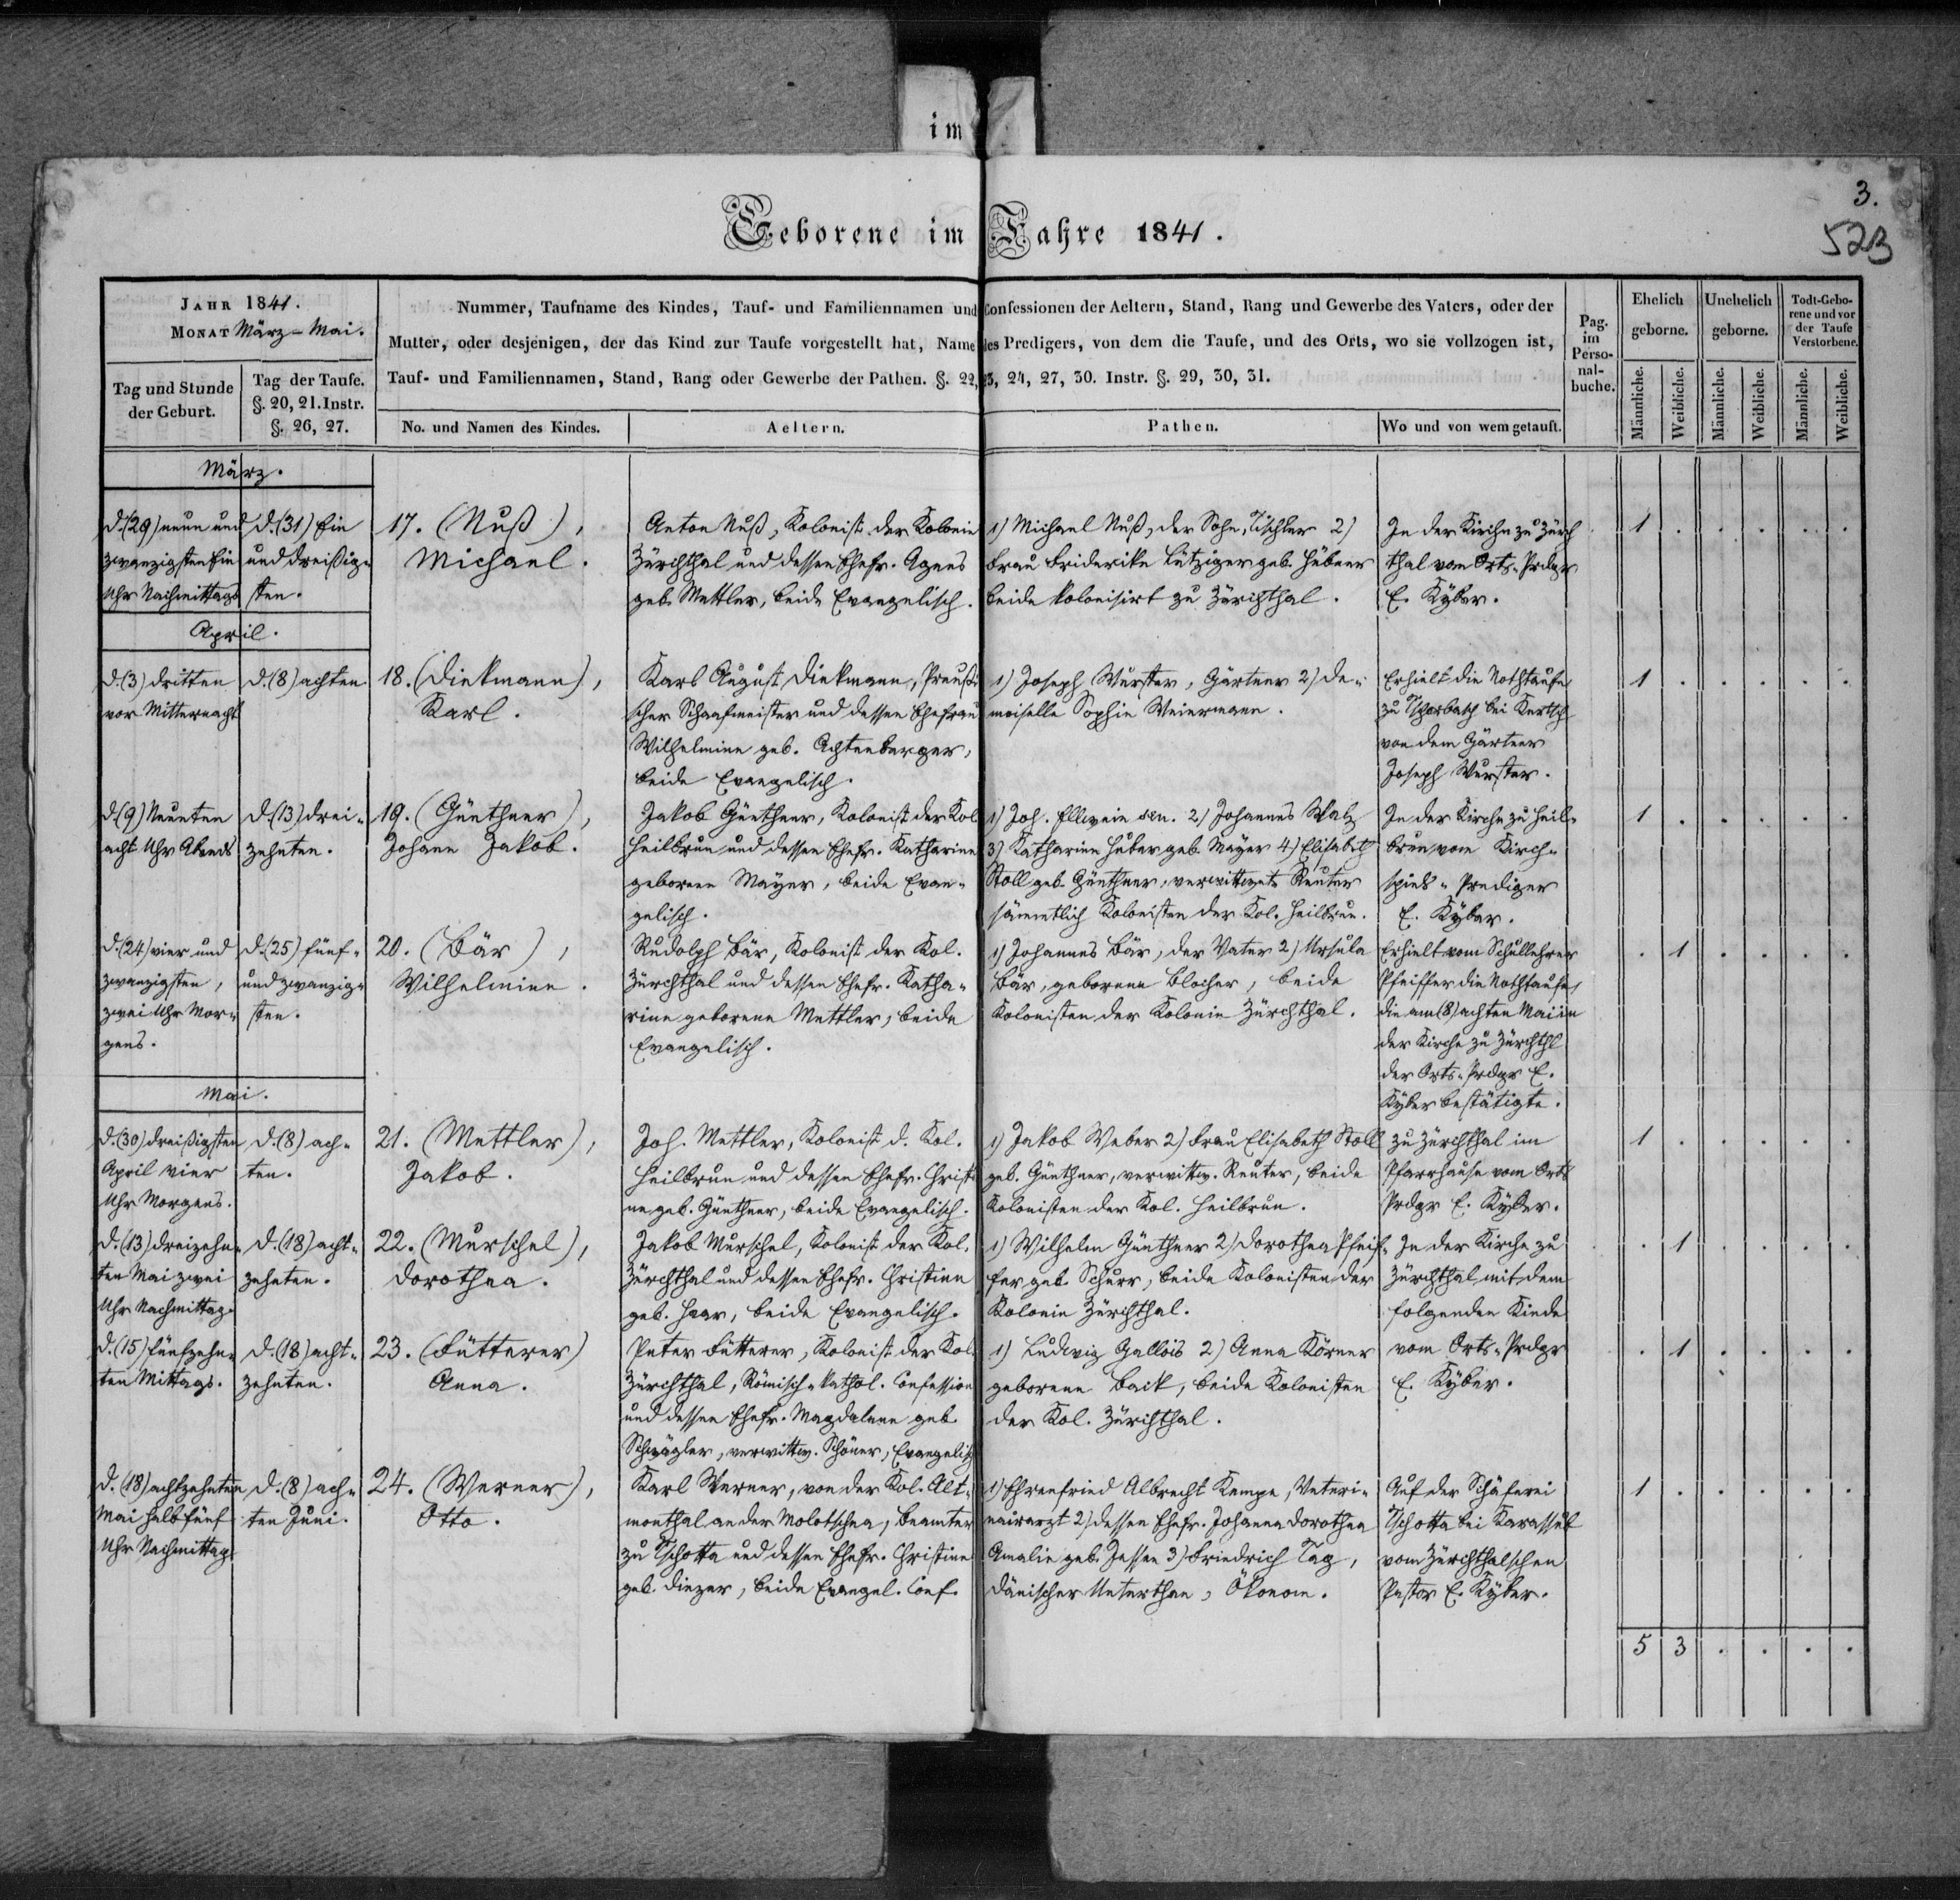 im
3.
523
Geborene im Jahre 1841.
JAHR 1841.
MONAT März - Mai.
Tag und Stunde
der Geburt.
Tag der Taufe.
§. 20, 21. Instr.
§. 26, 27.
Nummer, Taufname des Kindes, Tauf- und Familiennamen und Confessionen der Aeltern, Stand, Rang und Gewerbe des Vaters, oder der
Mutter, oder desjenigen, der das Kind zur Taufe vorgestellt hat, Name des Predigers, von dem die Taufe, und des Orts, wo sie vollzogen ist,
Tauf- und Familiennamen, Stand, Rang oder Gewerbe der Pathen. §. 22, 23, 24, 27, 30. Instr. §. 29, 30, 31.
No. und Namen des Kindes.
Aeltern.
Pathen.
Wo und von wem getauft.
Pag.
im
Perso-
nal-
buche.
Ehelich
geborne.
Unehelich
geborne.
Todt-Gebo-
rene und vor
der Taufe
Verstorbene.
Männliche.
Weibliche.
Männliche.
Weibliche.
Männliche.
Weibliche.
März.
d. (29) neun und
zwanzigsten Ein
Uhr Nachmittags
d. (31) Ein
und dreißig-
sten.
17. (Nuß),
Michael.
Anton Nuß, Kolonist der Kolonie
Zürchthal und dessen Ehefr. Agnes
geb. Mettler, beide Evangelisch.
1) Michael Nuß, der Sohn, Tischler 2)
Frau Friderike Lutziger geb. Hübner
beide kolonisirt zu Zürchthal.
In der Kirche zu Zürch
thal vom Orts-Prdgr
E. Kyber.
1 . . . . .
April.
d. (3) dritten
vor Mitternacht
d. (8) achten
18. (Diekmann),
Karl.
Karl August Diekmann, Preußi-
scher Schaafmeister und dessen Ehefrau
Wilhelmine geb. Achtenberger,
beide Evangelisch.
1) Joseph Wurster, Gärtner 2) De-
moiselle Sophie Weiermann.
Erhielt die Nothtaufe
zu Tschorbasch bei Kertsch
von dem Gärtner
Joseph Wurster.
1 . . . . .
d. (9) Neunten
acht Uhr Abends
d. (13) drei-
zehnten.
19. (Günthner),
Johann Jakob.
Jakob Günthner, Kolonist der Kol
Heilbrun und dessen Ehefr. Katharine
geborene Mayer, beide Evan-
gelisch.
1) Joh. Ellwein sen. 2) Johannes Walz
3) Katharine Huber geb. Mayer 4) Elisabeth
Stoll geb. Günthner, verwittwete Reuter
sämmtlich Kolonisten der Kol. Heilbrun.
In der Kirche zu Heil-
brun vom Kirch-
spiels-Prediger
E. Kyber.
1 . . . . .
d. (24) vier und
zwanzigsten,
zwei Uhr Mor-
gens.
d. (25) fünf-
und zwanzig-
sten.
20. (Bär),
Wilhelmine.
Rudolph Bär, Kolonist der Kol.
Zürchthal und dessen Ehefr. Katha-
rine geborene Mettler, beide
Evangelisch.
1) Johannes Bär, der Vater 2) Ursula
Bär, geborene Blocher, beide
Kolonisten der Kolonie Zürchthal.
Erhielt vom Schullehrer
Pfeiffer die Nothtaufe,
die am (8) achten Mai in
der Kirche zu Zürchthl
der Orts-Prdgr E.
Kyber bestätigte.
. 1 . . . .
Mai.
d. (30) dreißigsten
April vier
Uhr Morgens.
d. (8) ach-
ten.
21. (Mettler),
Jakob.
Joh. Mettler, Kolonist d. Kol.
Heilbrun und dessen Ehefr. Christi
ne geb. Günthner, beide Evangelisch.
1) Jakob Weber 2) Frau Elisabeth Stoll
geb. Günthner, verwittw. Reuter, beide
Kolonisten der Kol. Heilbrun.
Zu Zürchthal im
Pfarrhause vom Orts
Prdgr E. Kyber.
1 . . . . .
d. (13) dreizehn-
ten Mai zwei
Uhr Nachmittag
d. (18) acht-
zehnten.
22. (Murschel),
Dorothea.
Jakob Murschel, Kolonist der Kol.
Zürchthal und dessen Ehefr. Christine
geb. Haar, beide Evangelisch.
1) Wilhelm Günthner 2) Dorothea Pfeif-
fer geb. Schurr, beide Kolonisten der
Kolonie Zürchthal.
In der Kirche zu
Zürchthal mit dem
folgenden Kinde
. 1 . . . .
d. (15) fünfzehn-
ten Mittags.
d. (18) acht-
zehnten.
23. (Fütterer)
Anna.
Peter Fütterer, Kolonist der Kol.
Zürchthal, Römisch-kathol. Confession
und dessen Ehefr. Magdalene geb.
Schwägler, verwittw. Schöner, Evangelisch
1) Ludwig Gallois 2) Anna Körner
geborene Back, beide Kolonisten
der Kol. Zürchthal.
vom Orts-Prdgr
E. Kyber.
. 1 . . . .
d. (18) achtzehnten
Mai halb fünf
Uhr Nachmittag
d. (8) ach-
ten Juni.
24. (Werner),
Otto.
Karl Werner, von der Kol. Alt-
monthal an der Molotschna, Beamter
zu Tschotta und dessen Ehefr. Christine
geb. Diezer, beide Evangel. Conf.
1) Ehrenfried Albrecht Kempe, Veteri-
nairarzt 2) dessen Ehefr. Johanna Dorothea
Amalie geb. Jessen 3) Friedrich Tag,
dänischer Unterthan, Ökonom.
Auf der Schäferei
Tschotta bei Karassub
vom Zürchthalschen
Pastor E. Kyber.
1 . . . . .
5 3 . . . .